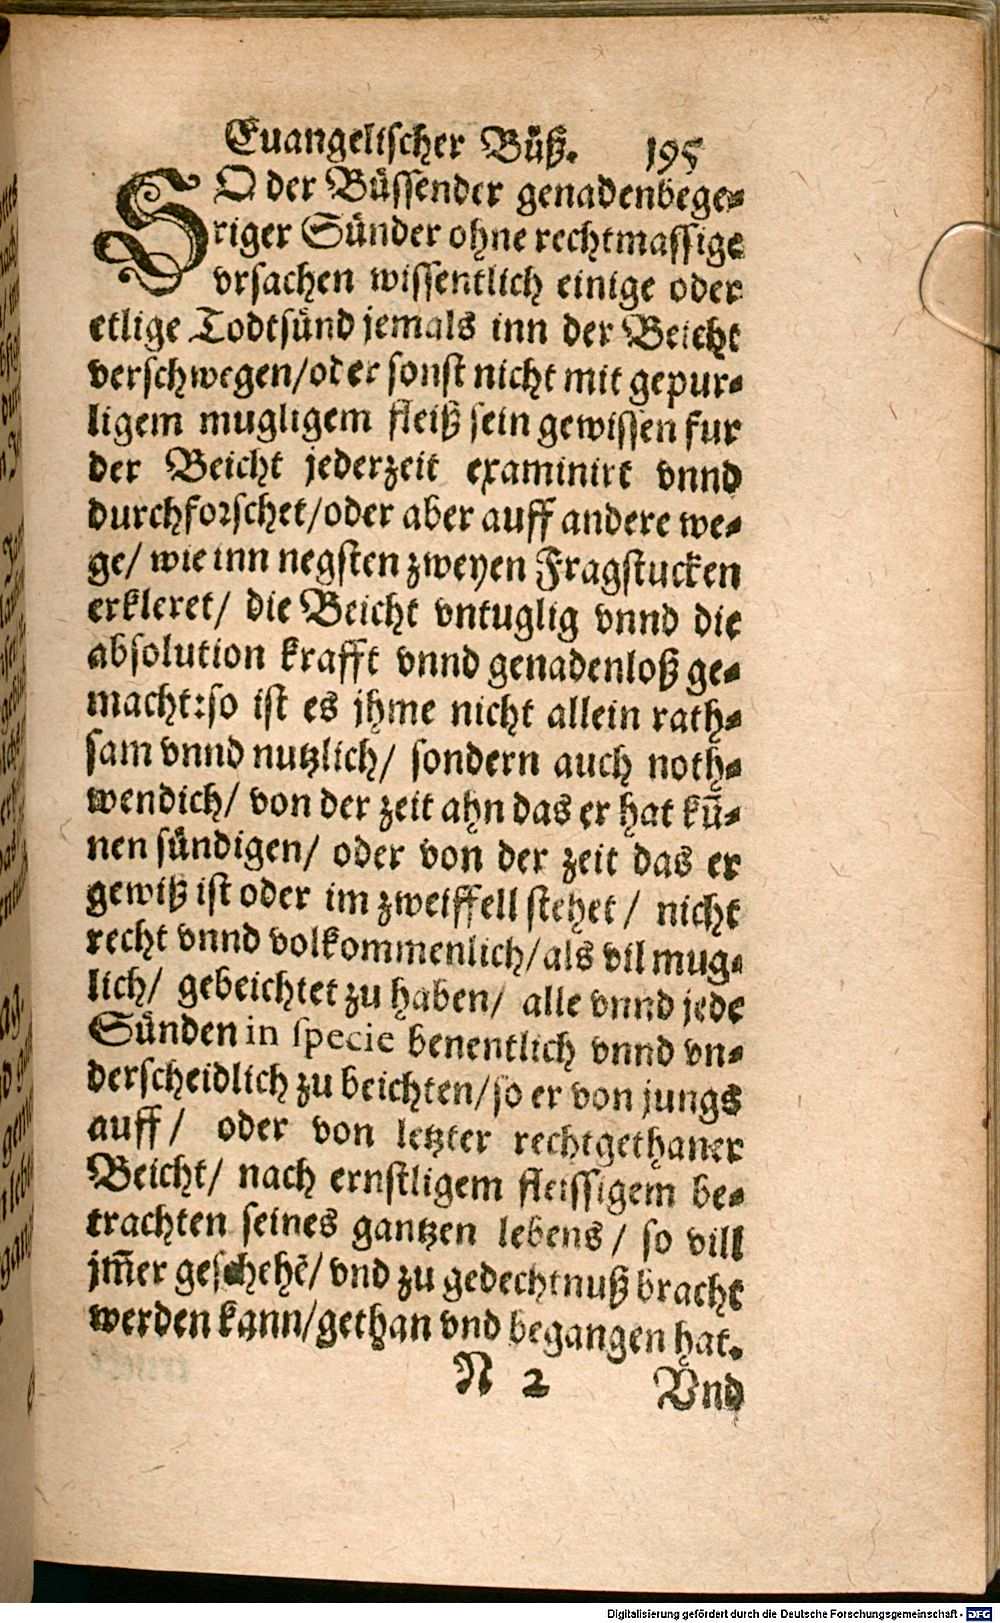 Euangelischer Büß. 195
SO der Büssender genadenbege-
riger Sünder ohne rechtmassige
vrsachen wissentlich einige oder
etlige Todtsünd jemals inn der Beicht
verschwegen/oder sonst nicht mit gepur-
ligem mugligem fleiß sein gewissen fur
der Beicht jederzeit examinirt vnnd
durchforschet/oder aber auff andere we-
ge/ wie inn negsten zweyen Fragstucken
erkleret/ die Beicht vntuglig vnnd die
absolution krafft vnnd genadenloß ge-
macht:so ist es jhme nicht allein rath-
sam vnnd nutzlich/ sondern auch noth-
wendich/ von der zeit ahn das er hat kǖ-
nen sündigen/ oder von der zeit das er
gewiß ist oder im zweiffell stehet/ nicht
recht vnnd volkommenlich/als vil mug-
lich/ gebeichtet zu haben/ alle vnnd jede
Sünden in specie benentlich vnnd vn-
derscheidlich zu beichten/so er von jungs
auff/ oder von letzter rechtgethaner
Beicht/ nach ernstligem fleissigem be-
trachten seines gantzen lebens/ so vill
jm̄er geschehē/ vnd zu gedechtnuß bracht
werden kann/gethan vnd begangen hat.
N 2 Vnd
Digitalisierung gefördert durch die Deutsche Forschungsgemeinschaft - DFG